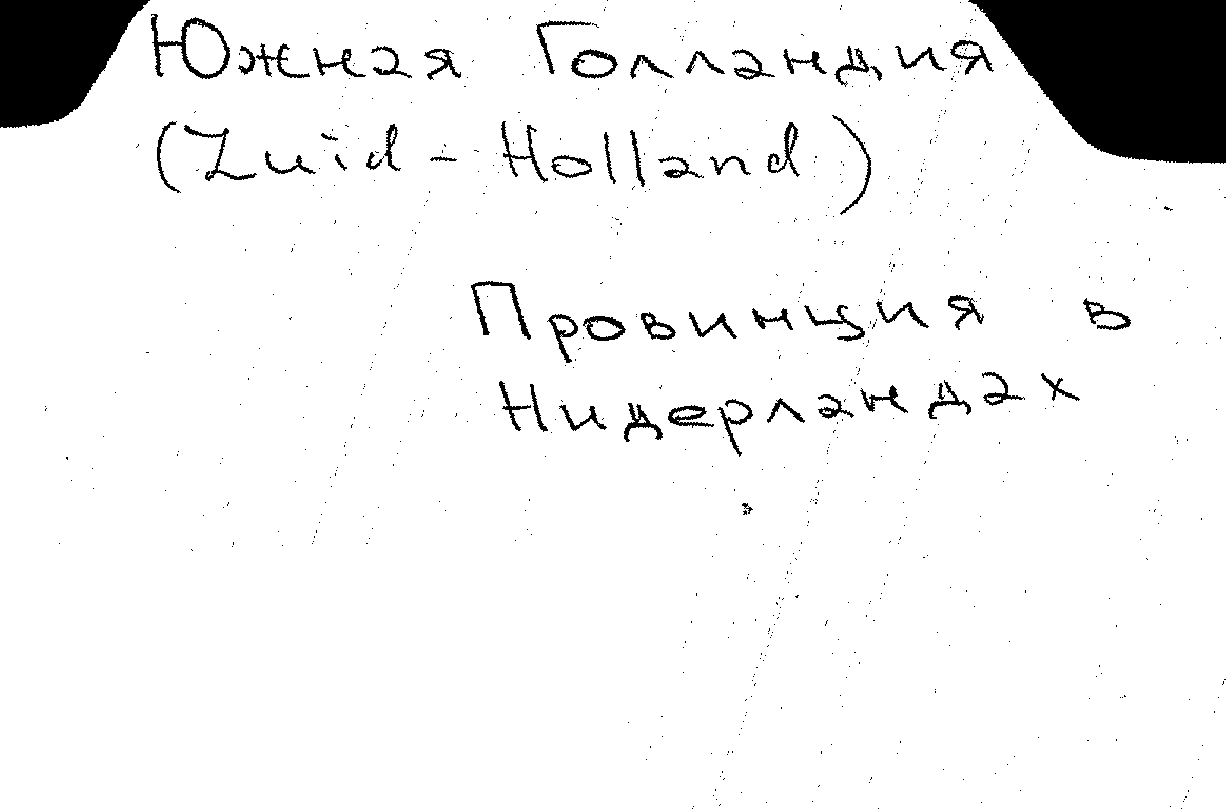 Южная Голландия
(Zuid - Holland)
Провинция в
Нидерландах